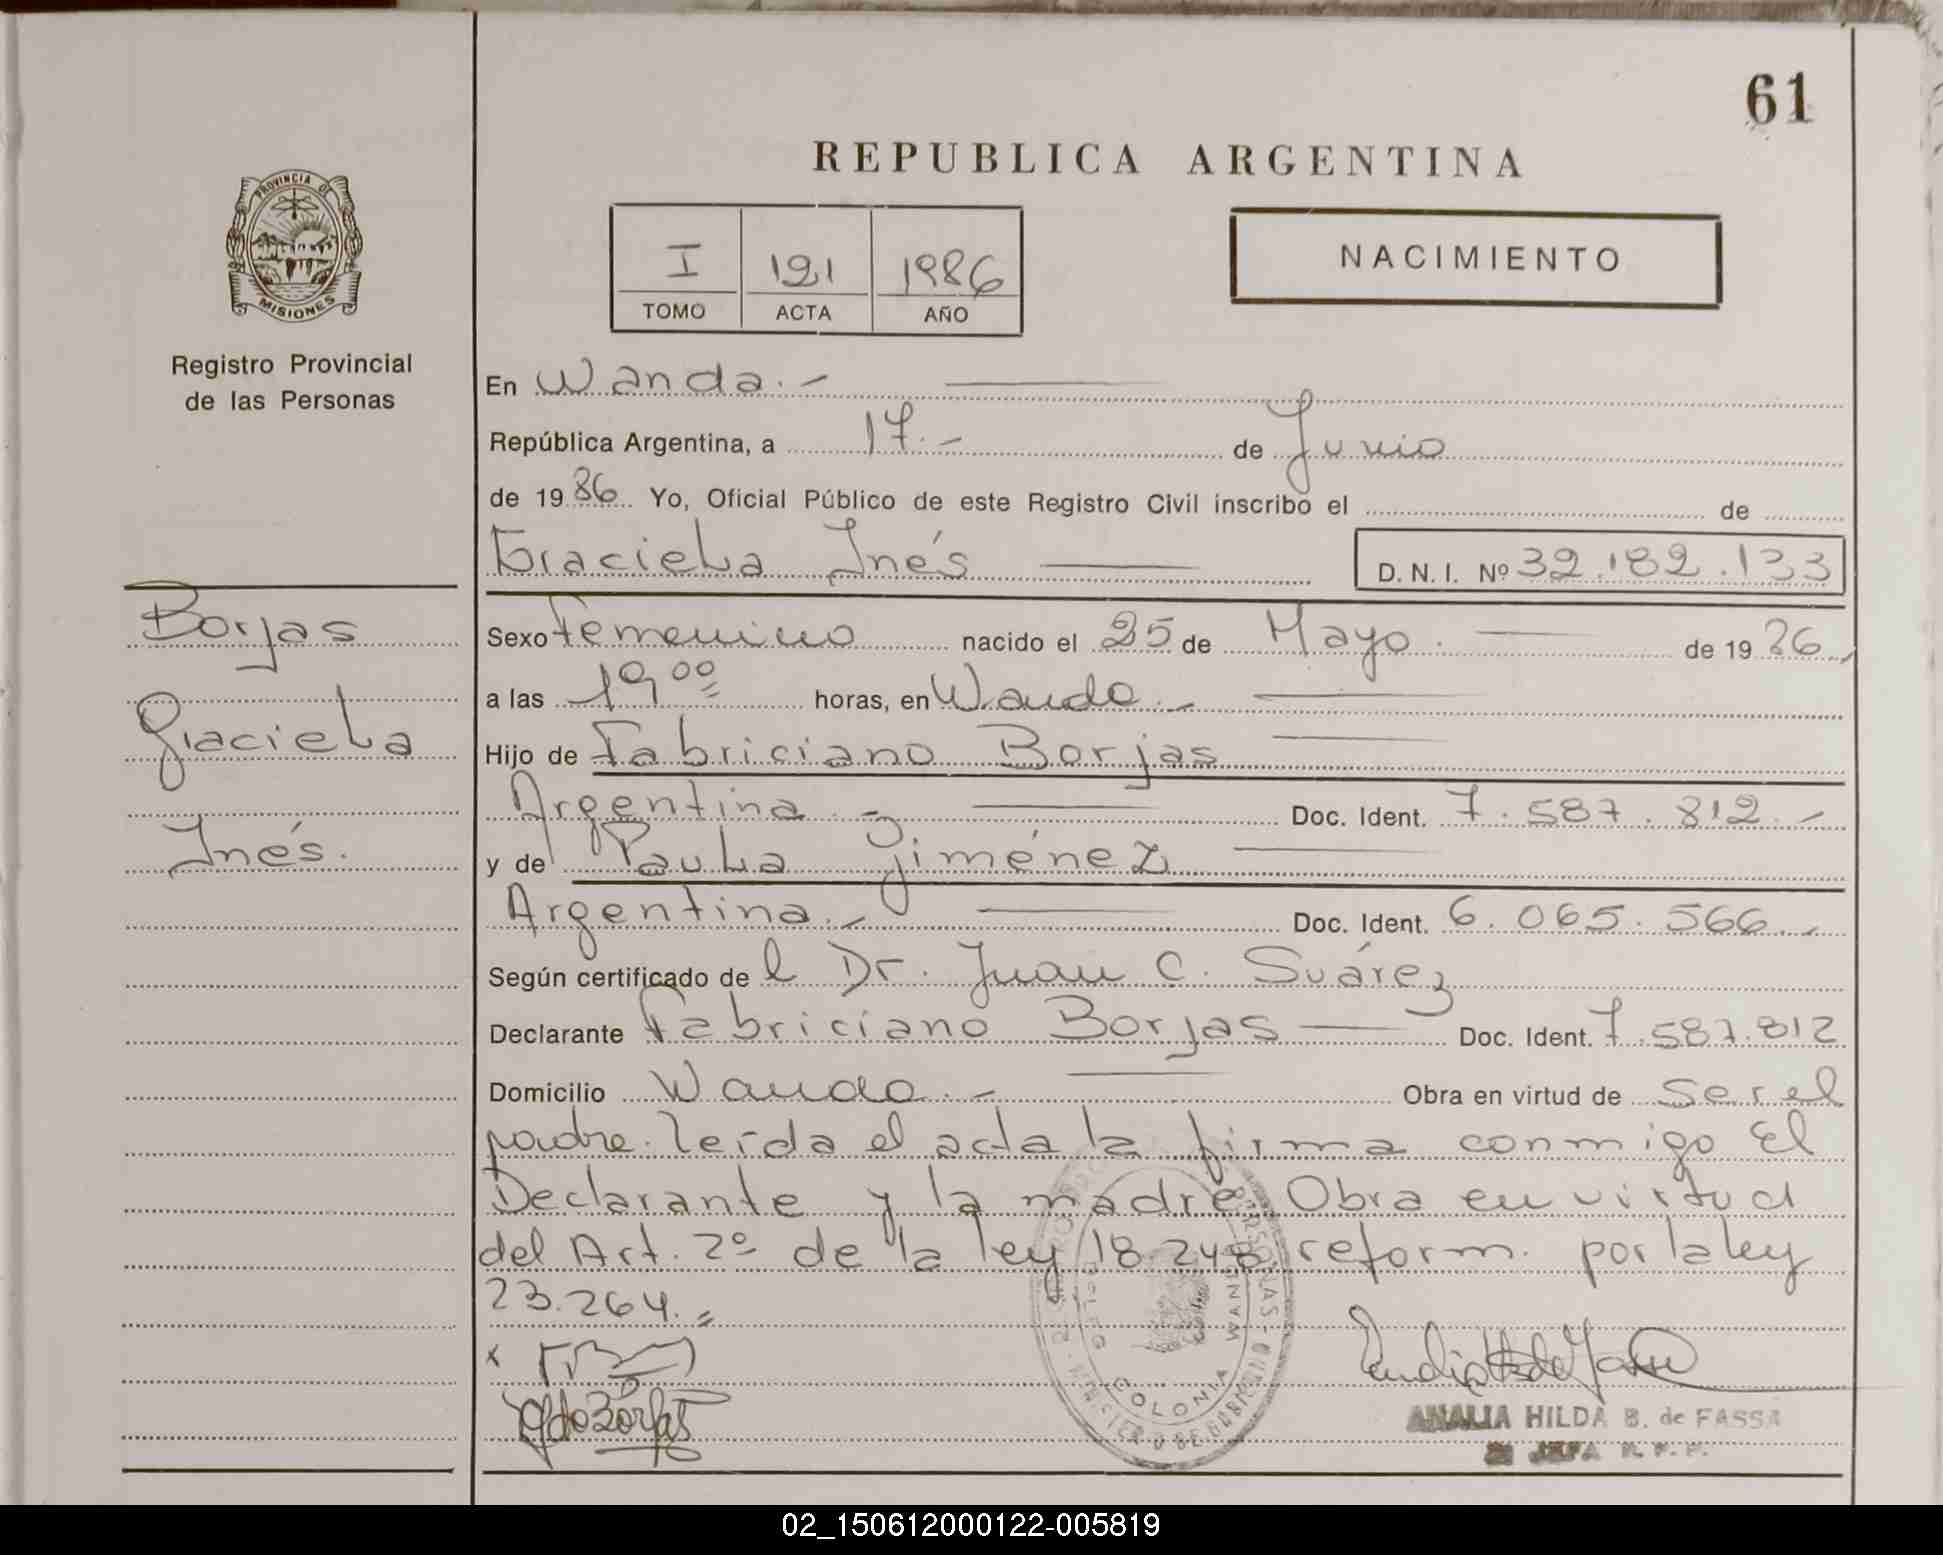 61
REPUBLICA ARGENTINA
PROVINCIA DE
MISIONES
Registro Provincial
de las Personas
I 121 1986
TOMO ACTA AÑO
NACIMIENTO
En Wanda.-
República Argentina, a 17.- de Junio
de 1986 Yo, Oficial Público de este Registro Civil inscribo el de
Graciela Inés D.N.I. Nº 32.182.133
Borjas
Graciela
Inés.
Sexo Femenino nacido el 25 de Mayo. de 1986
a las 19 00 horas, en Wanda.-
Hijo de Fabriciano Borjas
Argentina.- Doc. Ident. 7.587.812.-
y de Paula Jiménez
Argentina.- Doc. Ident. 6.065.566.-
Según certificado de l Dr. Juan C. Suárez
Declarante Fabriciano Borjas Doc. Ident. 7.587.812
Domicilio Wanda.- Obra en virtud de ser el
padre. leída el acta la firma conmigo El
Declarante y la madre Obra en virtud
del Art. 2º de la ley 18.248 reform. por la ley
23.264.=
x
COLONIA WANDA
ANALIA HILDA B. de FASSA
JEFA R. P. P.
02_150612000122-005819